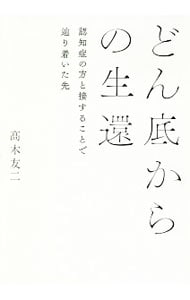 どん底から
の生還
認知症の方と接することで
辿り着いた先
髙木友二